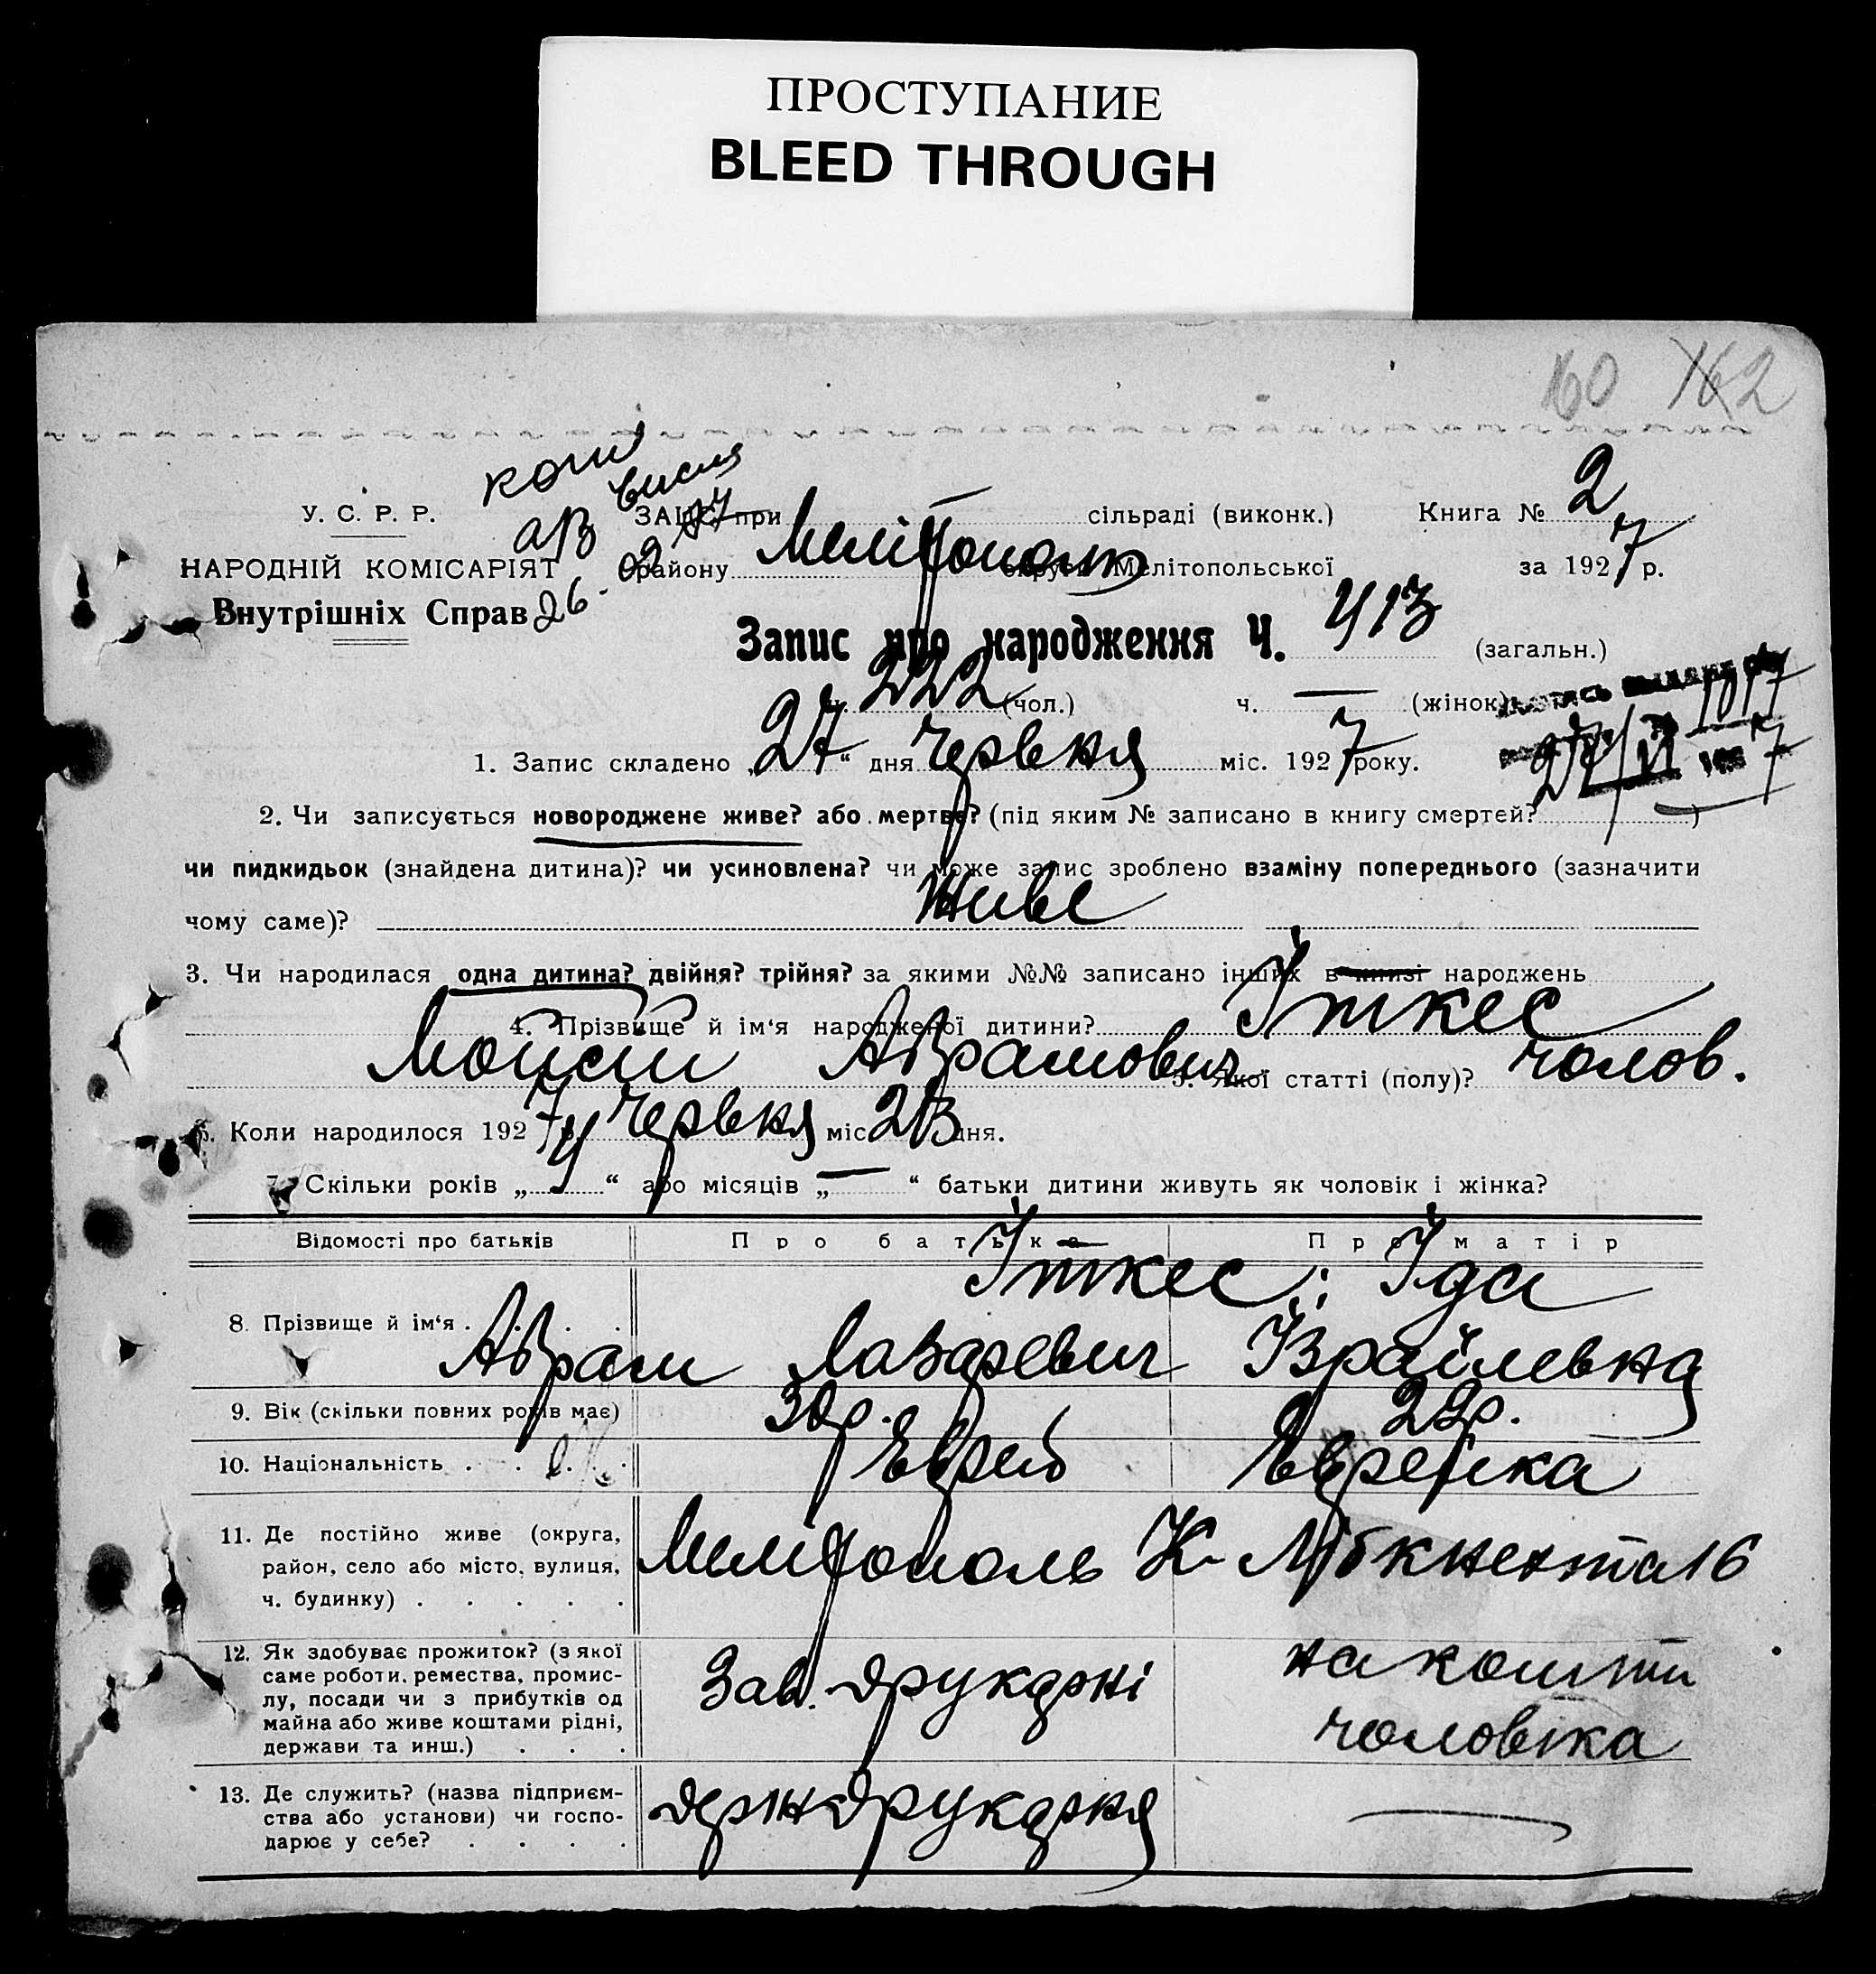 ПРОСТУПАНИЕ
BLEED THROUGH
60 162
У. С. Р. Р.
ЗАЦС при сільраді (виконк.) Книга № 2
НАРОДНІЙ КОМІСАРІЯТ району Мелітополь округи Мелітопольської за 1927 р.
Внутрішніх Справ
Запис про народження Ч. 413 (загальн.)
ч. 222 (чол.) ч. — (жінок)
1. Запис складено „27“ дня червня міс. 1927 року.
2. Чи записується новороджене живе? або мертве? (під яким № записано в книгу смертей? )
чи пидкидьок (знайдена дитина)? чи усиновлена? чи може запис зроблено взаміну попереднього (зазначити
чому саме)? живе
3. Чи народилася одна дитина? двійня? трійня? за якими №№ записано інших в книзі народжень
4. Прізвище й ім‘я народженої дитини? Іткес
Мойсей Аврамович 5. Якої статті (полу)? чолов.
6. Коли народилося 1927 р. червня міс. 23 дня.
7. Скільки років „4“ або місяців „—“ батьки дитини живуть як чоловік і жінка?
Відомості про батьків Про батька Про матір
Іткес: Іда
8. Прізвище й ім‘я . Аврам Лазаревич Ізраїлевна
9. Вік (скільки повних років має) 30р. 22р.
10. Національність . . . . Еврей Еврейка
11. Де постійно живе (округа,
район, село або місто, вулиця,
ч. будинку) . . . . .
Мелітополь К. Лібкнехта 16
12. Як здобуває прожиток? (з якої
саме роботи, ремества, промис-
лу, посади чи з прибутків од
майна або живе коштами рідні,
держави та инш.) . . .
Зав. друкарні
на кошти
чоловіка
13. Де служить? (назва підприєм-
ства або установи) чи госпо-
дарює у себе? . . . .
держдрукарня —